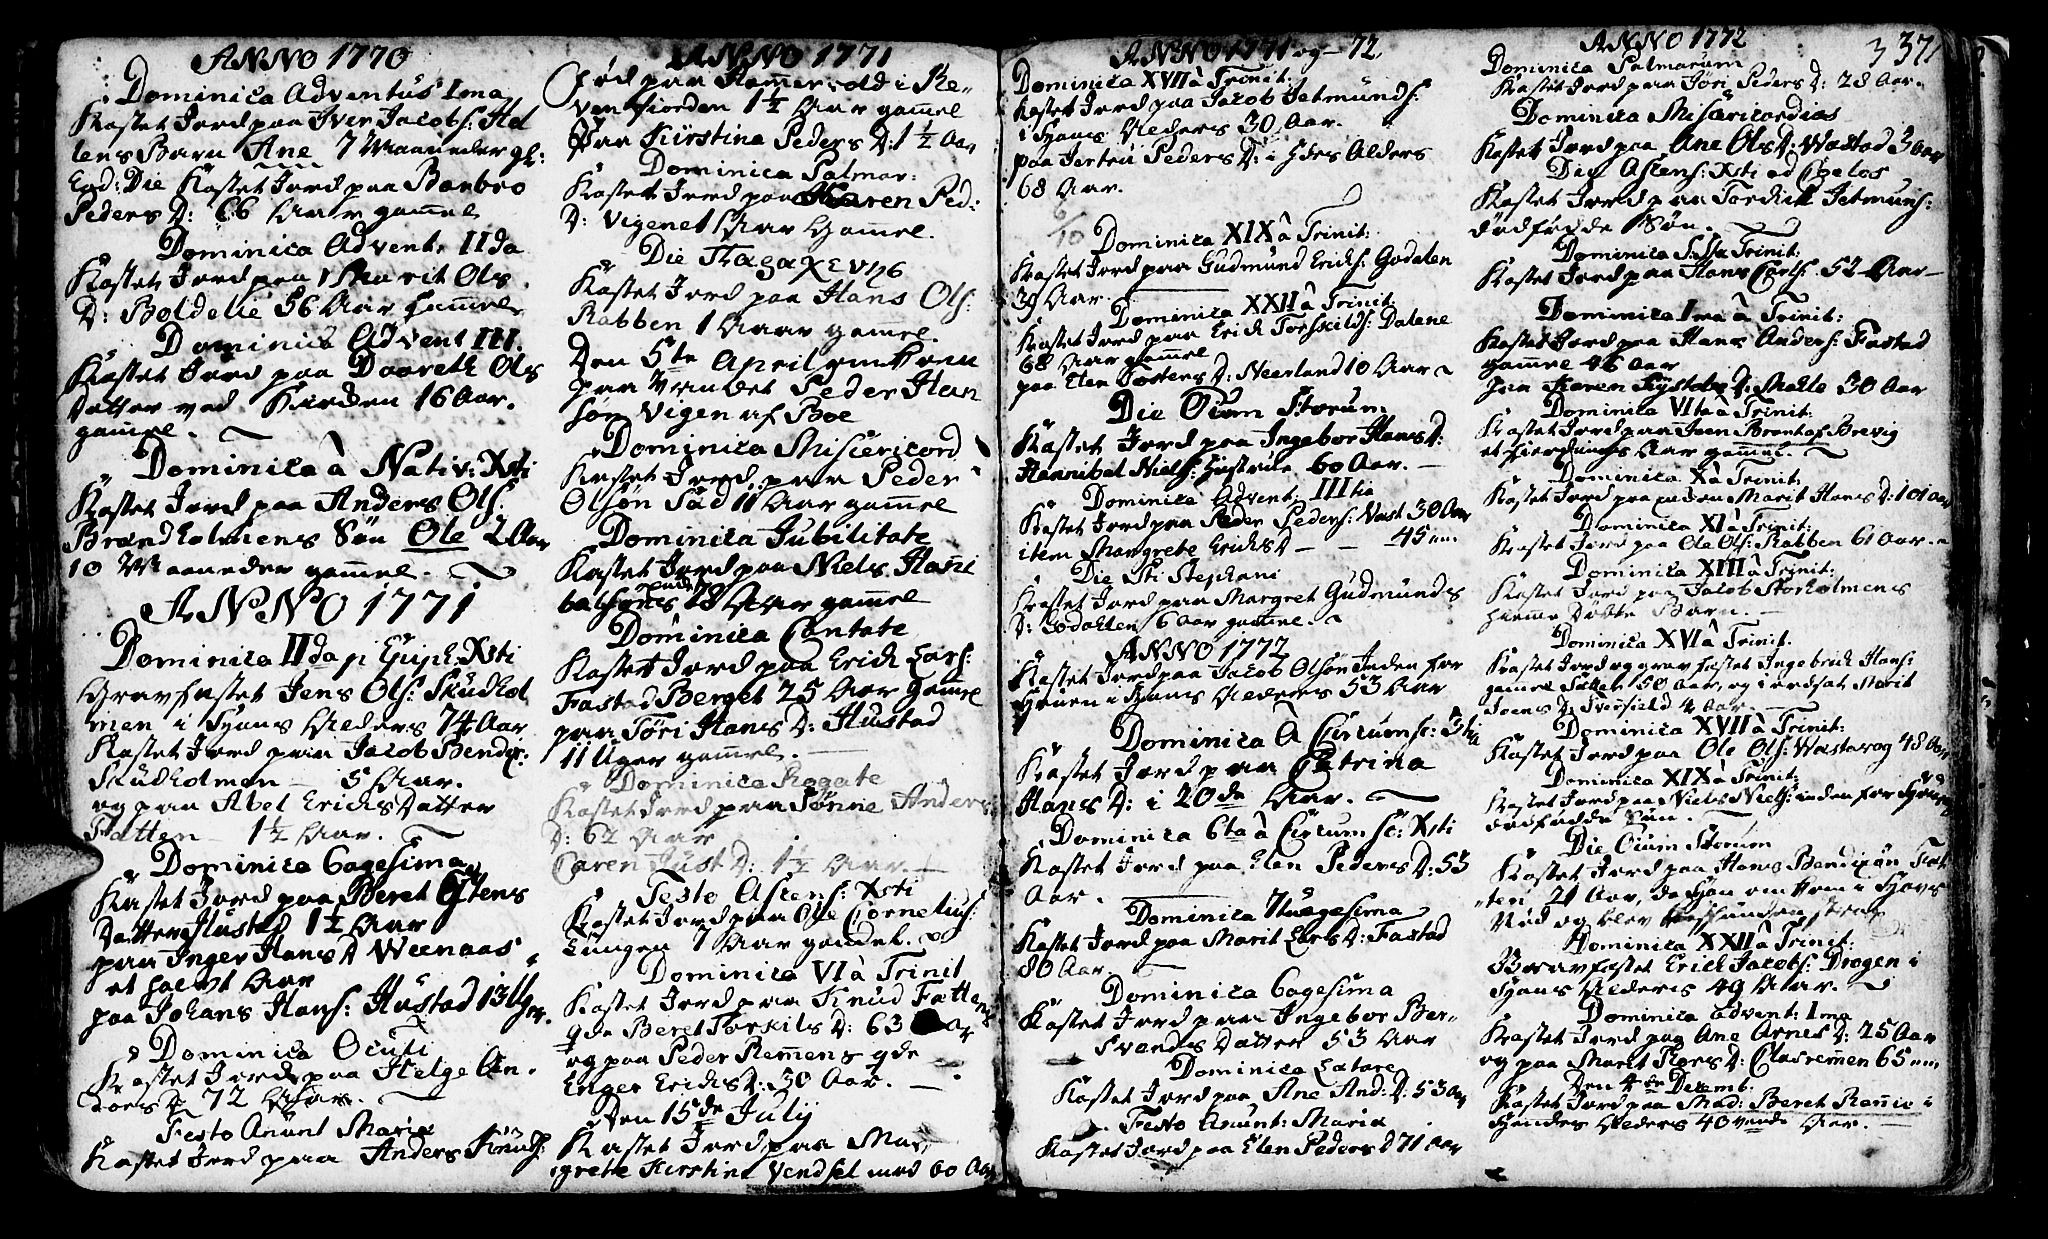 ANNO 1770
Dominica Adventus Ima
Kastet Jord paa Iver Jacobs: Hel
lens Barn Ane 7 Maaneder gl:
Eod: Die Kastet Jord paa Barbro
Peders D: 66 Aar gamel
Dominica Advent. IIda
Kastet Jord paa Marit Ols
D: Boldelie 56 Aar gamel
Dominica Advent III.
Kastet Jord paa Daareth Ols
Datter ved Kirken 16 Aar.
gamel.
Dominica à Nativ: Xsti
Kastet Jord paa Anders Ols:
Brandholmens Søn Ole 2 Aar
10 Maaneder gamel.
ANNO 1771
Dominica IIda p Epiph. Xsti
Gravfæstet Jens Ols: Skudhol
men i Hans Alders 74 Aar
Kastet Jord paa Jacob Bendix:
Skudholmen 5 Aar.
og paa Abel Erichs Datter
Fatten 1½ Aar.
Dominica 6agesima
Kastet Jord paa Beret
Datter Hustad 1½ Aar
paa Inger Hans D Weenaas
et halvt Aar
paa Johans Hans: Hustad 13 Uger.
Dominica Oculi
Kastet Jord paa Helge An
Lors D 72 Aar.
Festo Anunt Maria
Kastet Jord paa Anders Knuds:
ANNO 1771
død paa Hamervold i Re
ven fiorden 1½ Aar gamel
Paa Kirstina Peders D: 1½ Aar
Dominica Palmar:
Kastet Jord paa Karen Ped:
D: Vigenet Aar Gamel.
Die
Kastet Jord paa Hans Ols:
Rabben 1 Aar gamel.
Den 5te April omkom
paa Vandet Peder Han
søn Vigen af Boe
Dominica Misericord
Kastet Jord paa Peder
Olsøn Sad 11 Aar gamel
Dominica Jubilitate
Kastet Jord paa Niels Hani
balsøns 18 Aar gamel
Dominica Cantate
Kastet Jord paa Erich Lars:
Fastad Berget 25 Aar Gamel
paa Töri Hans D: Hustad
11 Uger gamel.
Dominica Rogate
Kastet Jord paa Sønne Anders
D: 62 Aar
Caren Just D: 1½ Aar
Festo Ascens: Xsti
Kastet Jord paa Ole Cornelius:
Lungen 7 Aar gamel.
Dominica VI à Trinit
Kastet Jord paa Knud Fatten
qde Beret Torkils D: 63 Aar
og paa Peder Remens qde
Enger Erichs D: 30 Aar.
Den 15de Julij
Kastet Jord paa Mar
grete Kirstine Vendsel med 60 Aar
ANNO 1771 og 72
Dominica XVII à Trinit:
Kastet Jord paa Jacob Jetmunds:
i Hans Alders 30 Aar.
paa Jorten Peders D: i Hdes Alders
68 Aar.
6/10
Dominica XIX à Trinit:
Kastet Jord paa Gudmund Erichs: Godalen
39 Aar
Dominica XXII à Trinit:
Kastet Jord paa Erich Torskilds: Dalene
68 Aar gamel
paa Elen Torsters D: Neerland 10 Aar
Die Oium Storum
Kastet Jord paa Ingebor Hans D:
Hannibal Niels: Hustrue 60 Aar.
Dominica Advent: IIItia
Kastet Jord paa Peder Peders: Vast 30 Aar
item Margrete Erichs D 45
Die Sti Stephani
Kastet Jord paa Margret Gudmunds
D: Godahlen 6 Aar gamel.
ANNO 1772
Kastet Jord paa Jacob Olsøn Inden for
Hœnen i Hans Alders 53 Aar
Dominica A Circumsc: 3tia
Kastet Jord paa Catrina
Hans D: i 20de Aar.
Dominica 6ta à Circumsc: Xsti
Kastet Jord paa Elen Peders D: 53
Aar.
Dominica 7tuagesima
Kastet Jord paa Marit Lars D: Fastad
80 Aar
Dominica 6agesima
Kastet Jord paa Ingebor Ber
Svends Datter 53 Aar
Dominica Lætare
Kastet Jord paa Ane And: D: 53 Aar
Festo Anunt: Maria
Kastet Jord paa Elen Peders D 71 Aar
ANNO 1772
3 37
Dominica Palmarum
Kastet Jord paa Jöri Peders D: 28 Aar.
Dominica Misericordias
Kastet Jord paa Ane Ols D: Wastad 3 Aar
Die Ascens: Xsti ad Coelos
Kastet Jord paa Tordick Jetmuns:
dödfödde Søn.
Dominica Trinit:
Kastet Jord paa Hans Carls. 52 Aar
Dominica Ima à Trinit:
Kastet Jord paa Hans Anders: Fastad
gamel 46 Aar
paa Karen D: Malle 30 Aar
Dominica VIta à Trinit:
Kastet Jord paa Iven Brantas Brevig
et fierdings Aar gamel.
Dominica X à Trinit:
Kastet Jord paa enken Marit Hans D: 101 Aar
Dominica XI à Trinit:
Kastet Jord paa Ole Ols: Rabben 61 Aar.
Dominica XIII à Trinit:
Kastet Jord paa Jacob Storholmens
hieme Döbte Barn.
Dominica XVI à Trinit:
Kastet Jord og grav fæstet Ingebrich Hans:
gamel Fatten 50 Aar, og i ordsat Marit
Joens D: Tverfield 4 Aar.
Dominica XVII à Trinit:
Kastet Jord paa Ole Ols: Wastavag 48 Aar
Dominica XIX à Trinit:
Kastet Jord paa Niels Niels: inden for
dödfödde Søn.
Die Oium Storum
Kastet Jord paa Hans Bendixøn Fat
ten 21 Aar, da Han omkom i Havs
Nöd og blev
Dominica XXII à Trinit:
Gravfæstet Erich Jacobs: Drogen i
Hans Alders 49 Aar.
Dominica Advent: Ima
Kastet Jord paa Ane Arnes D: 25 Aar
og paa Marit Lars D: Clausremen 65
Den 4de Decemb.
Kastet Jord paa Mad: Beret Ramie i
Hendes Alders 40 vende Aar.